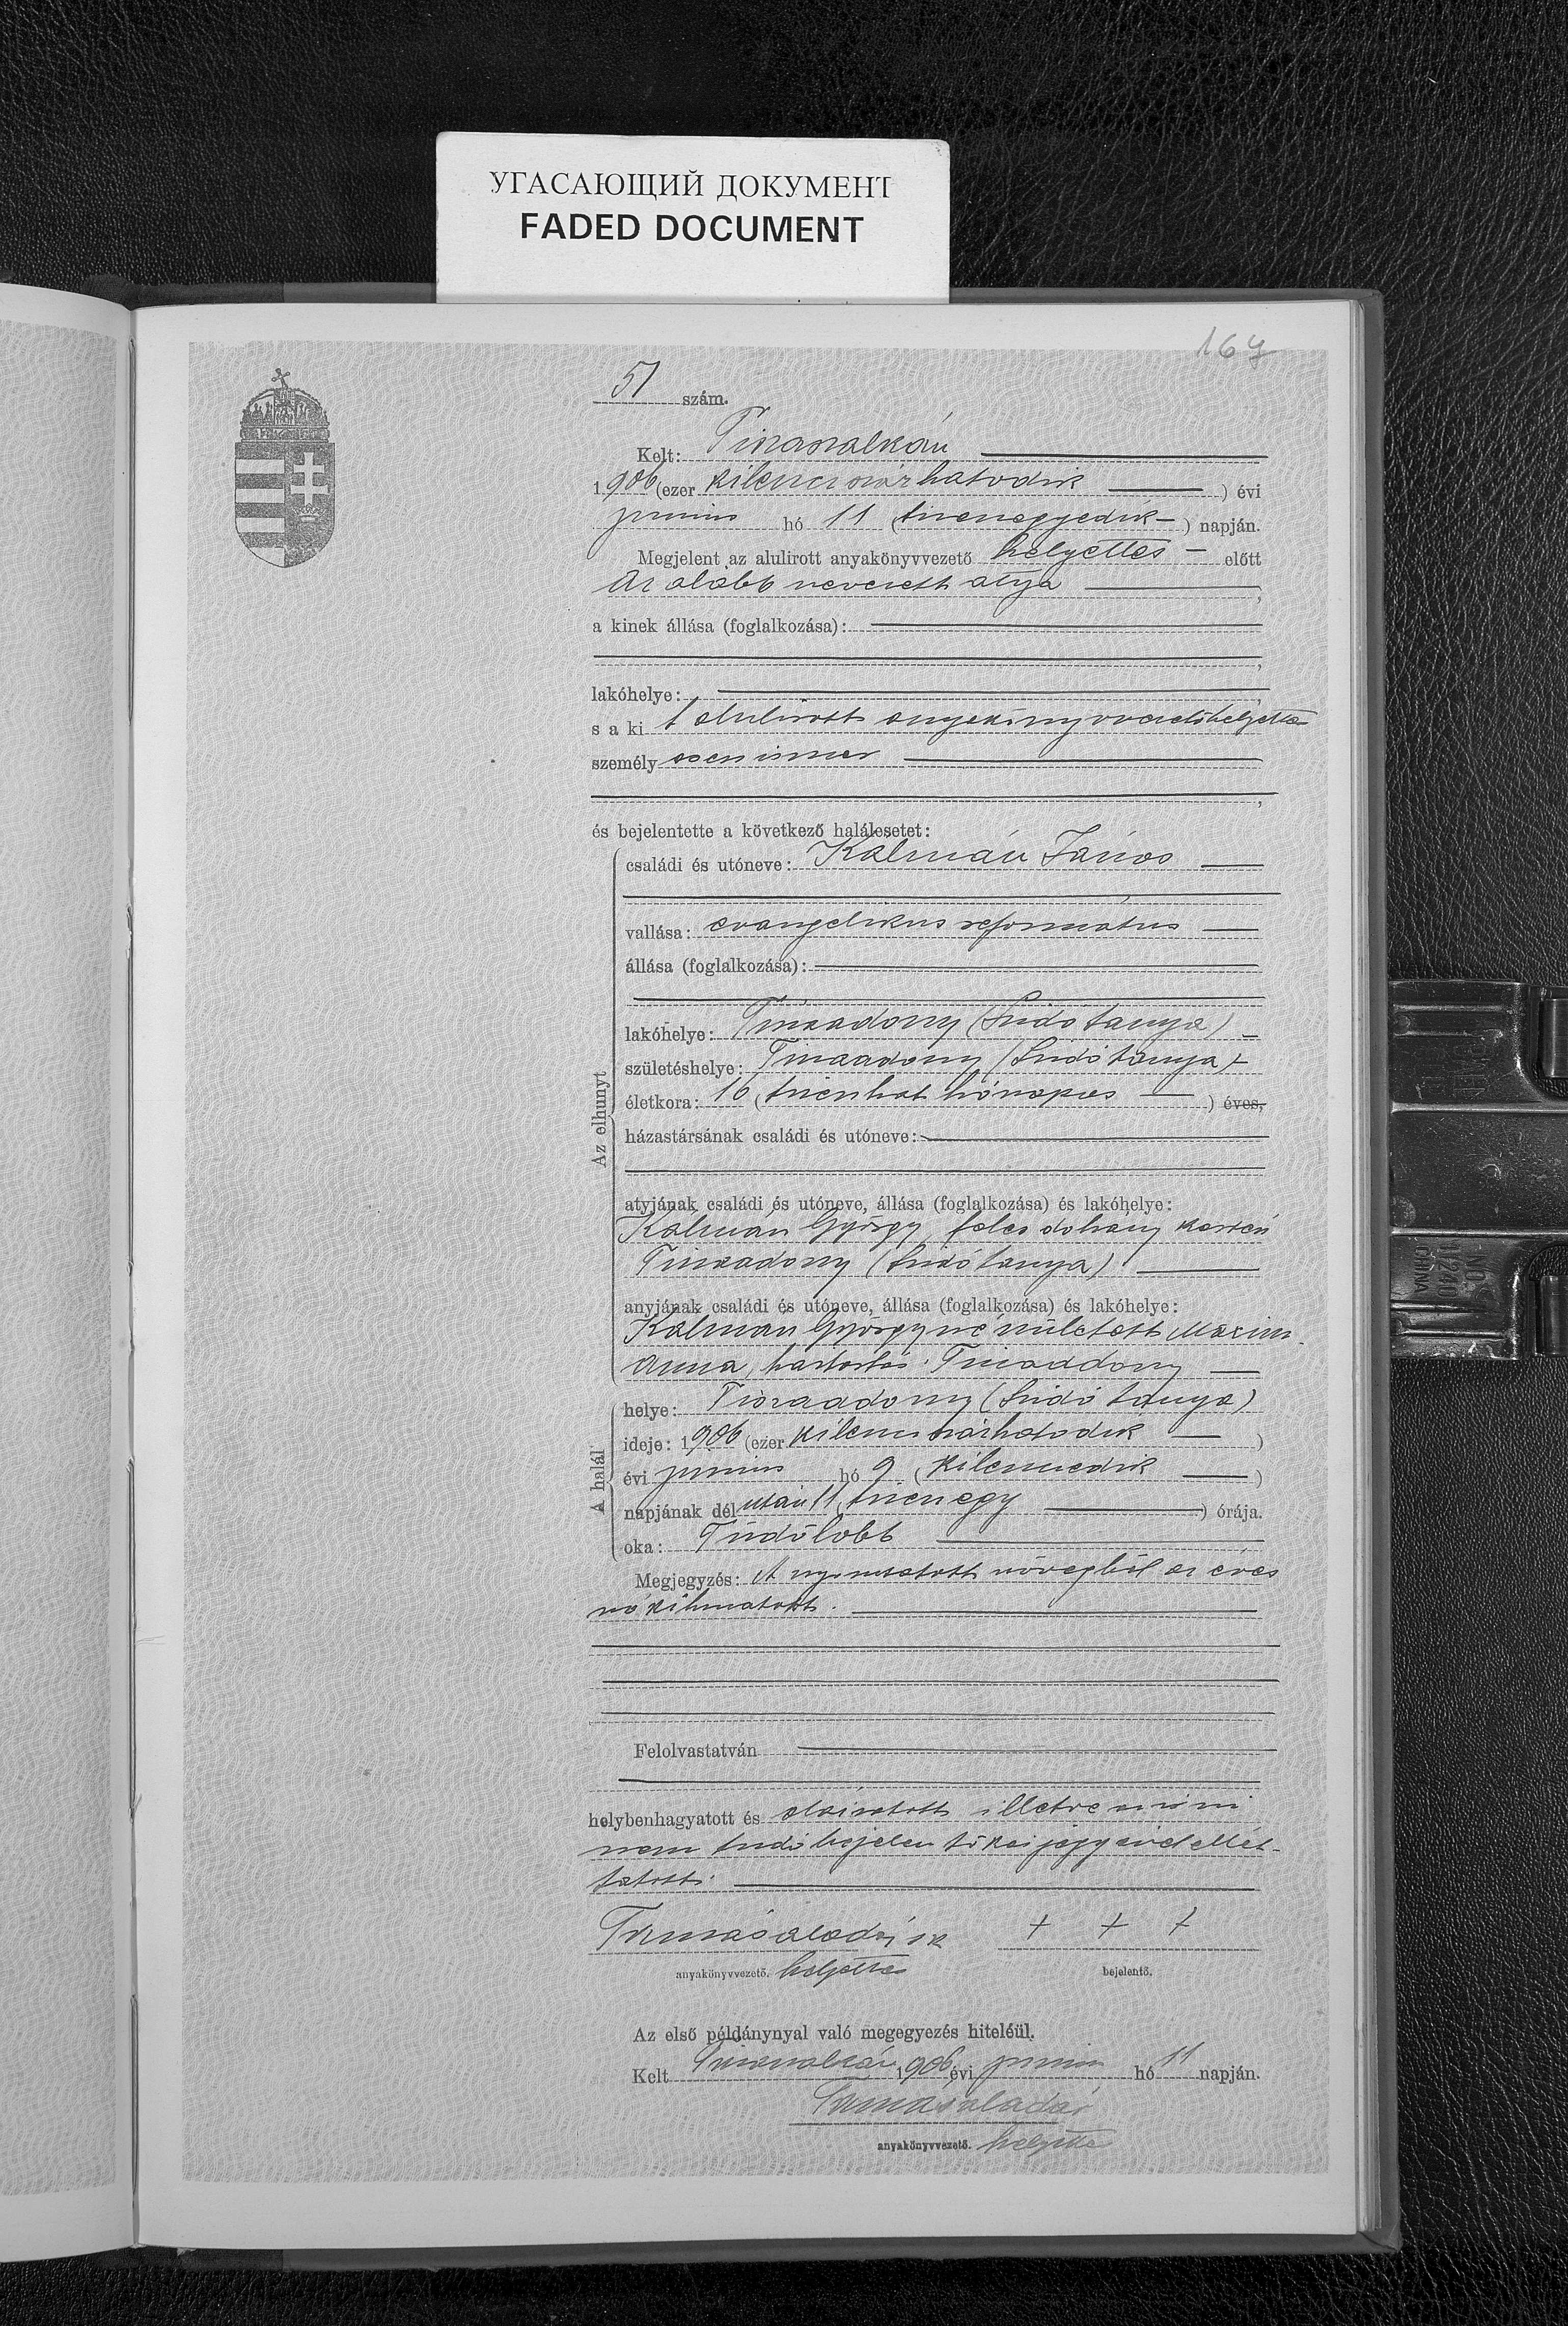 УГАСАЮЩИЙ ДОКУМЕНТ
FADED DOCUMENT
167
51 szám.
Kelt: Tiszaszalkán
1906 (ezer kilenczszázhatodik) évi
junius hó 11 (tizenegyedik) napján.
Megjelent az alulirott anyakönyvvezető helyettes előtt
Az alább nevezett atya,
a kinek állása (foglalkozása):
lakóhelye:
s a ki t alulirott anyakönyvvezetőhelyettes
személyesen ismer
és bejelentette a következő halálesetet:
Az elhunyt
családi és utóneve: Kálmán János
vallása: evangelikus református
állása (foglalkozása):
lakóhelye: Tiszaadony (Lidótanya)
születéshelye: Tiszaadony (Lidótanya)
életkora: 16 (tizenhat hónapos) éves,
házastársának családi és utóneve:
atyjának családi és utóneve, állása (foglalkozása) és lakóhelye:
Kálmán György, feles dohány kertész
Tiszaadony (Lidótanya)
anyjának családi és utóneve, állása (foglalkozása) és lakóhelye:
Kálmán Györgyné született Maxim
Anna, háztartás. Tiszaadony
A halál
helye: Tiszaadony (Lidó tanya)
ideje: 1906 (ezer kilenczszázhatodik)
évi junius hó 9 (kilenczedik)
napjának dél után 11 (tizenegy) órája.
oka: Tüdőlobb
Megjegyzés: A nyomtatott szövegből az éves
szó kihuzatott.
Felolvastatván
helybenhagyatott és aláíratott illetve az írni
nem tudó bejelentő kézjegyével ellát-
tatott.
Tamás Aladár sk + + +
anyakönyvvezető. helyettes bejelentő.
Az első példánynyal való megegyezés hiteléül.
Kelt Tiszaszalkán 1906 évi junius hó 11 napján.
Tamás Aladár
anyakönyvvezető. helyettes